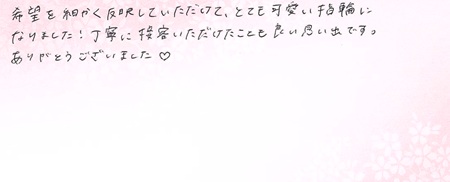 希望を細かく反映していただけて、とても可愛い指輪に
なりました！丁寧に接客いただけたことも良い思い出です。
ありがとうございました♡